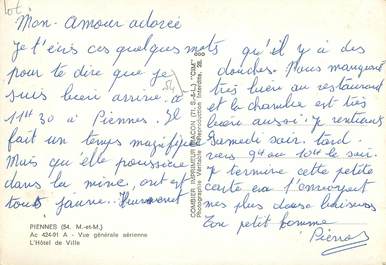 Mon Amour adorée
Je t'écris ces quelques mots
pour te dire que je
suis bien arrivé à
11h30 à Piennes. Il
fait un temps magnifique
Mais quelle poussière
dans la mine, on est
tout jaune. Heureusement
qu'il y a des
douches. Nous mangeons
très bien au restaurant
et la chambre est très
bien aussi. Je rentrerai
Samedi soir. tard.
vers 9h ou 10h le soir.
Je termine cette petite
carte en t'envoyant
mes plus doux baisers
Ton petit homme
Pierrot
PIENNES (54. M.-et-M.)
Ac 424-91 A - Vue générale aérienne
L'Hôtel de Ville
COMBIER IMPRIMEUR MACON (71. S.-et-L.) "CIM"
Photographie Véritable - Reproduction Interdite.